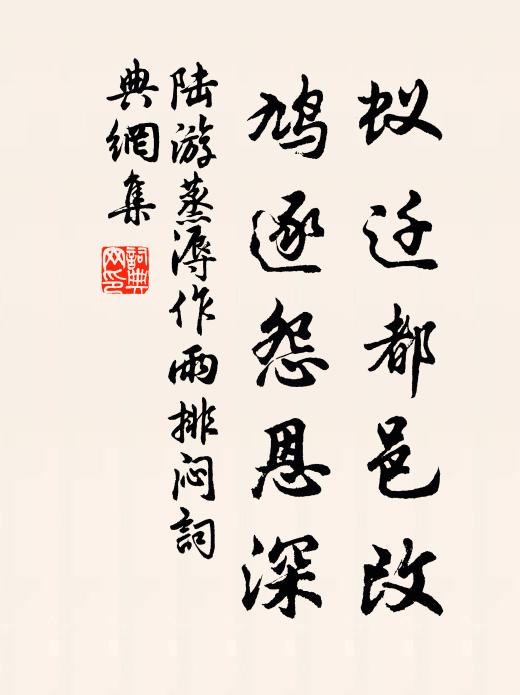 蚁迁都邑改
鸠逐怨恩深
陆游蒸溽作雨排闷詞
典網集
詞典网印